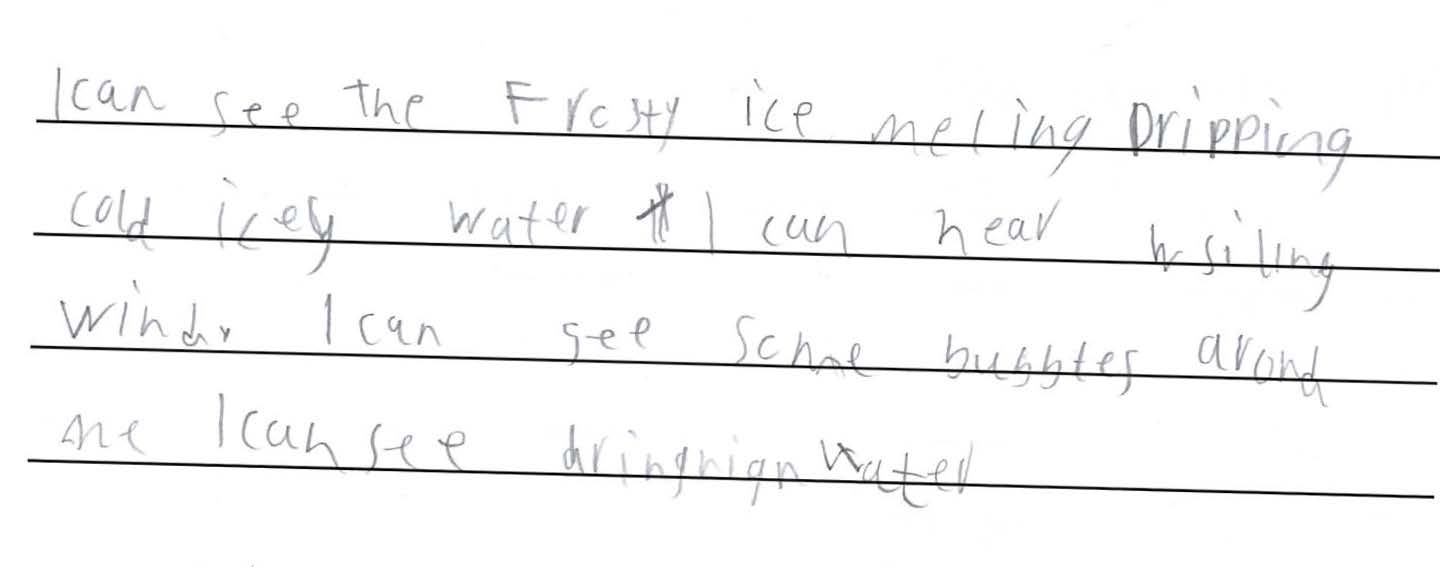 I can see the Frosty ice meling Dripping
cold icey water I can hear wsiling
wind I can see some bubbles arond
me I can see water